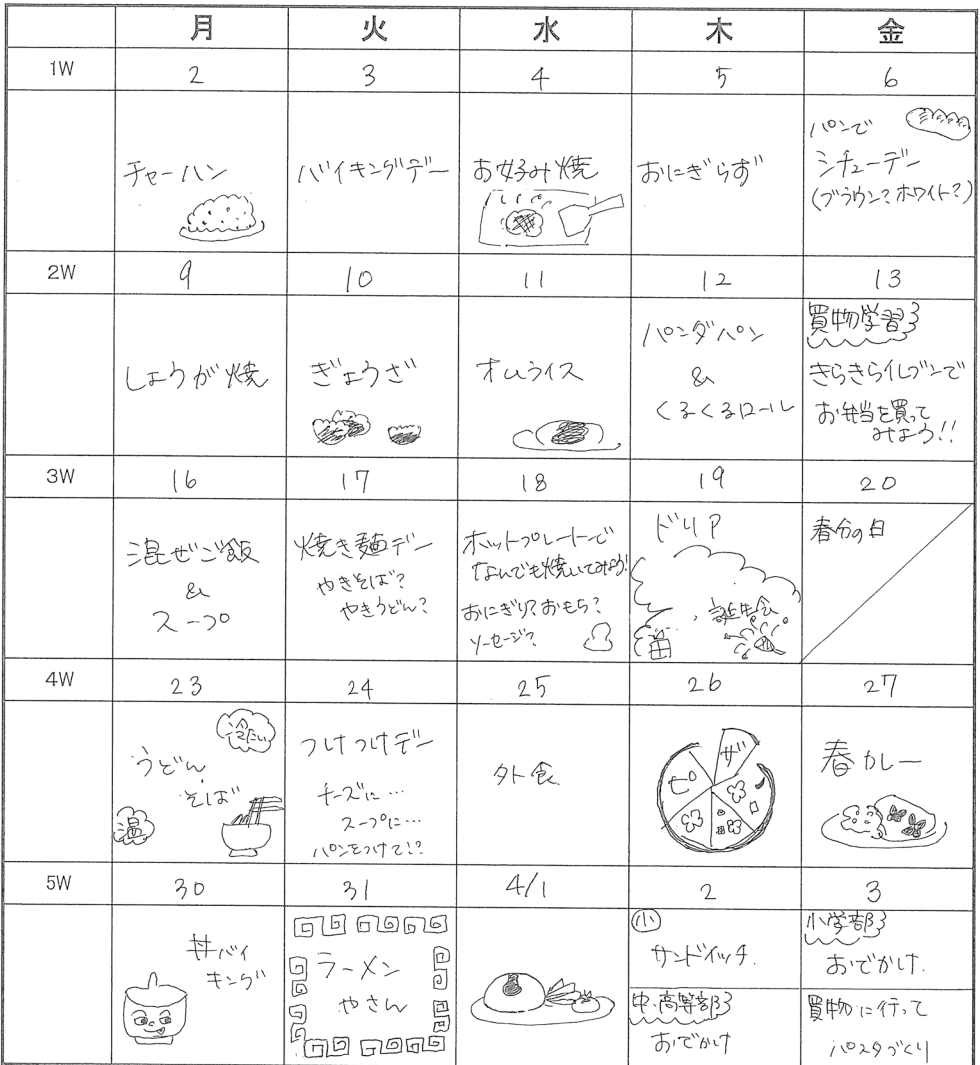 月 火 水 木 金
1W 2 3 4 5 6
チャーハン
バイキングデー
お好み焼
おにぎらず
パンで
シチューデー
(ブラウン?ホワイト?)
2W 9 10 11 12 13
しょうが焼
ぎょうざ
オムライス
パンダパン
&
くるくるロール
買物学習
きらきらイレブンで
お弁当を買って
みよう!!
3W 16 17 18 19 20
混ぜご飯
&
スープ
焼き麺デー
やきそば?
やきうどん?
ホットプレートで
なんでも焼いてみよう!
おにぎり?おもち?
ソーセージ?
ドリア
誕生会
春分の日
4W 23 24 25 26 27
冷たい
うどん
そば
温
つけつけデー
チーズに…
スープに…
パンをつけて!?
外食
ピザ
春カレー
5W 30 31 4/1 2 3
丼バイ
キング
ラーメン
やさん
小
サンドイッチ
中・高等部
おでかけ
小学部
おでかけ.
買物に行って
パスタづくり